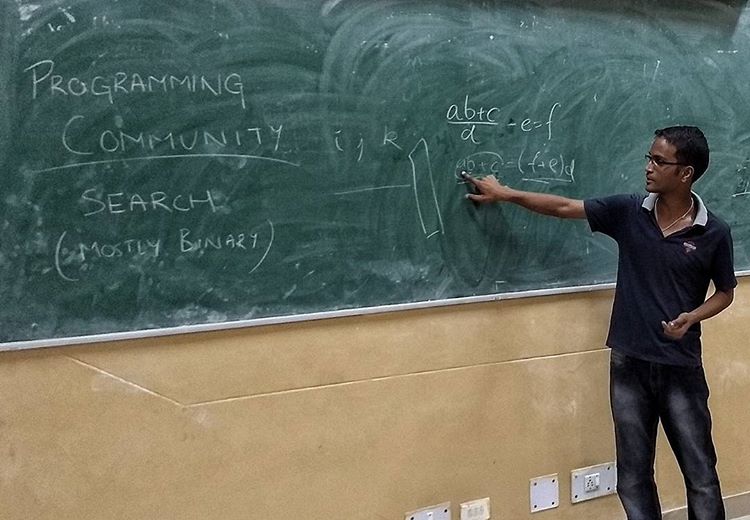 PROGRAMMING
COMMUNITY
SEARCH
(MOSTLY BINARY)
i, j, k
ab+c
d
-e=f
ab+c=(f+e)d